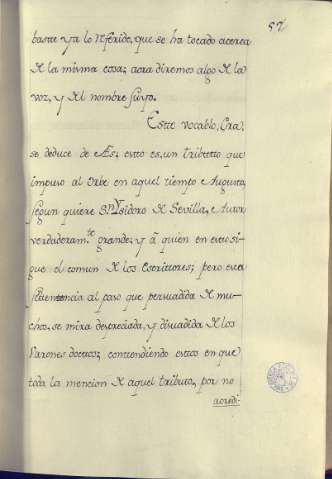 57
baste ya lo referido, que se ha tocado acerca
de la misma cosa; aora diremos algo de la
voz, y del nombre suyo.
Este vocablo, Era,
se deduce de Æs; esto es, un tributo que
impuso al Orbe en aquel tiempo Augusto,
segun quiere Sn. Ysidoro de Sevilla, Autor
verdaderam.te grande, y á quien en esto si-
gue el comun de los Escritores; pero esta
sentencia al paso que persuadida de mu-
chos, se mira despreciada, y disuadida de los
Varones doctos; contendiendo estos en que
toda la mencion de aquel tributo, por no
acredi-